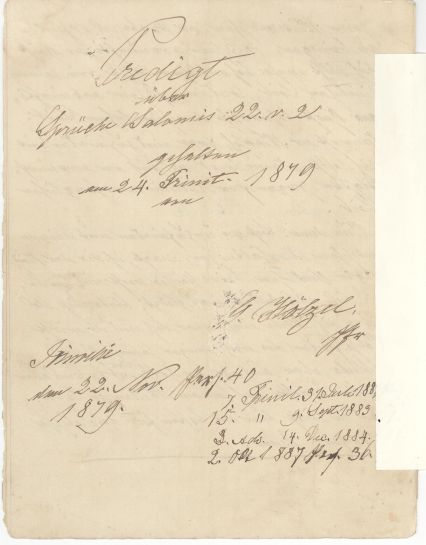 Predigt
über
Sprüche Salomis 22. v. 2
gehalten
am 24. Trinit. 1879
von
G Hölzel.
Pfr
den 22. Nov. Pers. 40
1879.
7. Trinit. 3 Juli 188
15. " 9. Sept. 1883
3. Adv. 14. Dec. 1884.
2. 1887 Pers. 36